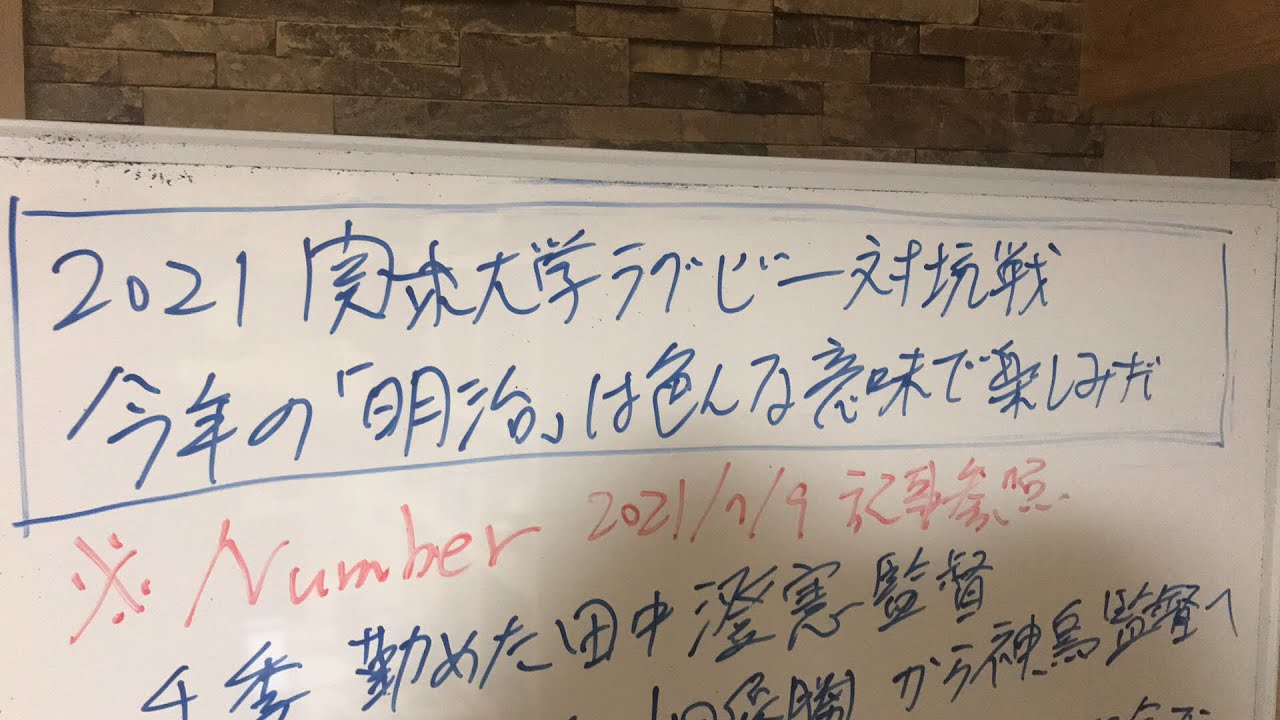 2021 関東大学ラグビー対抗戦
今年の「明治」は色んな意味で楽しみだ
※ Number 2021/7/9 記事参照.
4季 勤めた田中澄憲監督
から神鳥監督へ